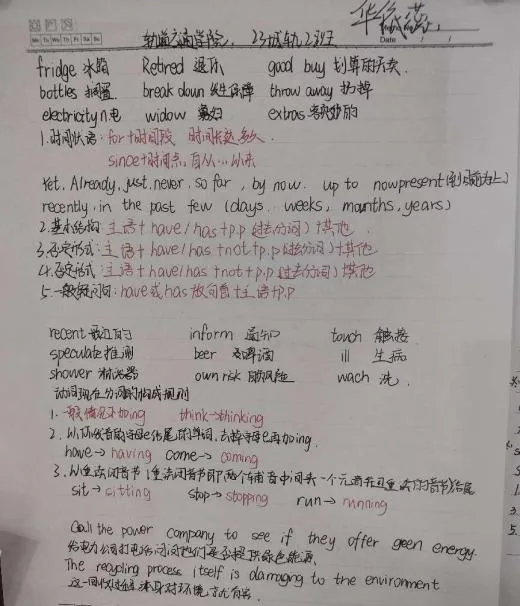 轨道交通学院, 23城轨2班
Date
fridge 冰箱 Retired 退休 good buy 划算的买卖.
bottles break down 发生故障 throw away 扔掉
electricity n电 widow 寡妇 extras 额外的
1.时间状语: for+时间段 时间长达多久.
since+时间点, 自从…以来
Yet, Already, just, never, so far, by now. up to now present(到目前为止)
recently, in the past few (days. weeks, mounths, years)
2.基本结构: 主语+have/has+p.p(过去分词)+其他.
3.否定形式: 主语+have/has+not+p.p(过去分词)+其他
4.否定形式: 主语+have/has+not+p.p(过去分词)+其他
5.一般疑问句: have或has放句首+主语+p.p
recent 最近的 inform 通知 touch 触接
speculate 推测 beer 啤酒 ill 生病
shower 淋浴器 own risk 风险 wach 洗.
动词现在分词的构成规则
1.一般情况下加ing think→thinking
2.以不发音的字母e结尾的单词,去掉字母e再加ing.
have→having come→coming
3.以重读闭音节(重读闭音节即两个辅音中间夹一个元音并且重读的音节)结尾
sit→sitting stop→stopping run→running
Call the power company to see if they offer geen energy.
给电力公司打电话问问他们是否提供绿色能源.
The recycling process itself is damaging to the environment
这一回收过程本身对环境就有害.